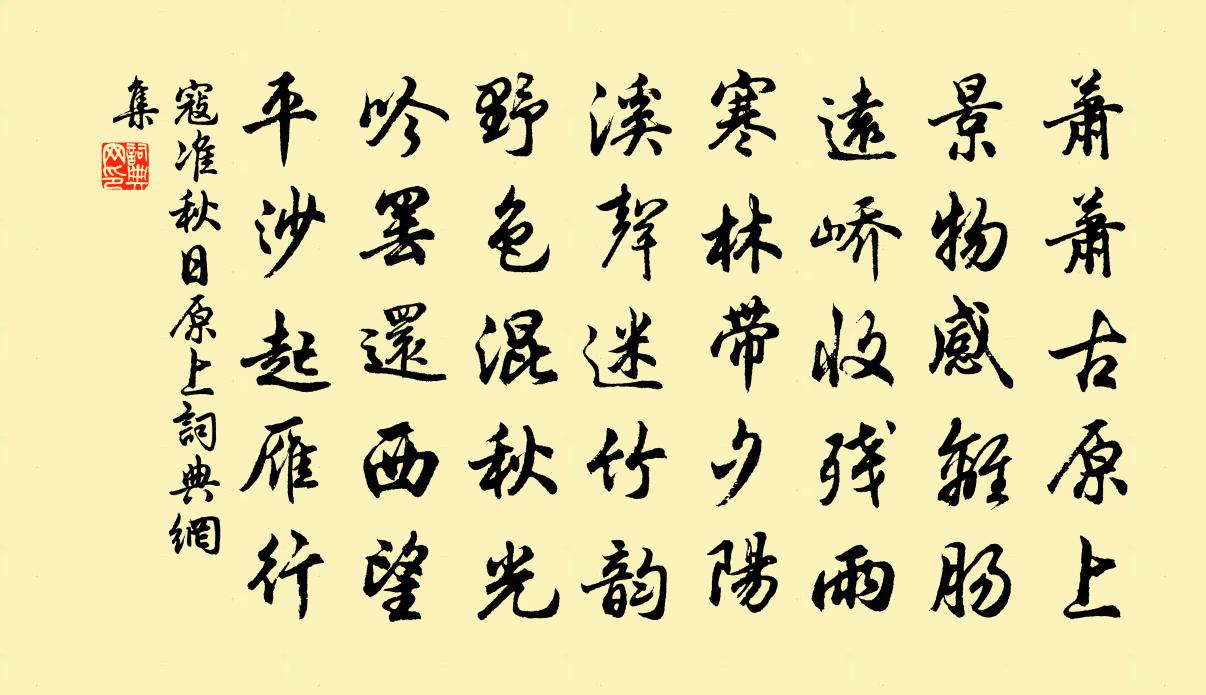 蕭蕭古原上
景物感離腸
遠嶠收残雨
寒林帶夕陽
溪聲迷竹韵
野色混秋光
吟罢還西望
平沙起雁行
寇准秋日原上詞典網
集
詞典
网印